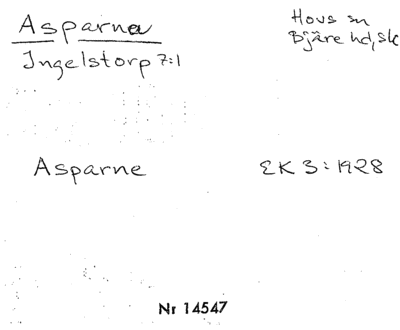 Asparna
Hovs sn
Bjäre hd, Sk
Ingelstorp 7:1
Asparne
EK 3:1928
Nr 14547